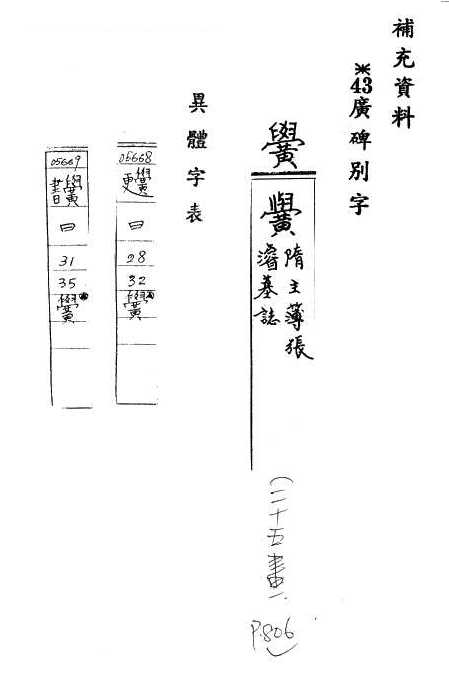 補充資料
※43廣碑別字
黌
隋主薄張
濬墓誌
(二十五畫)
P.806
異體字表
05668
日
28
32
黌
05669
日
31
35
黌